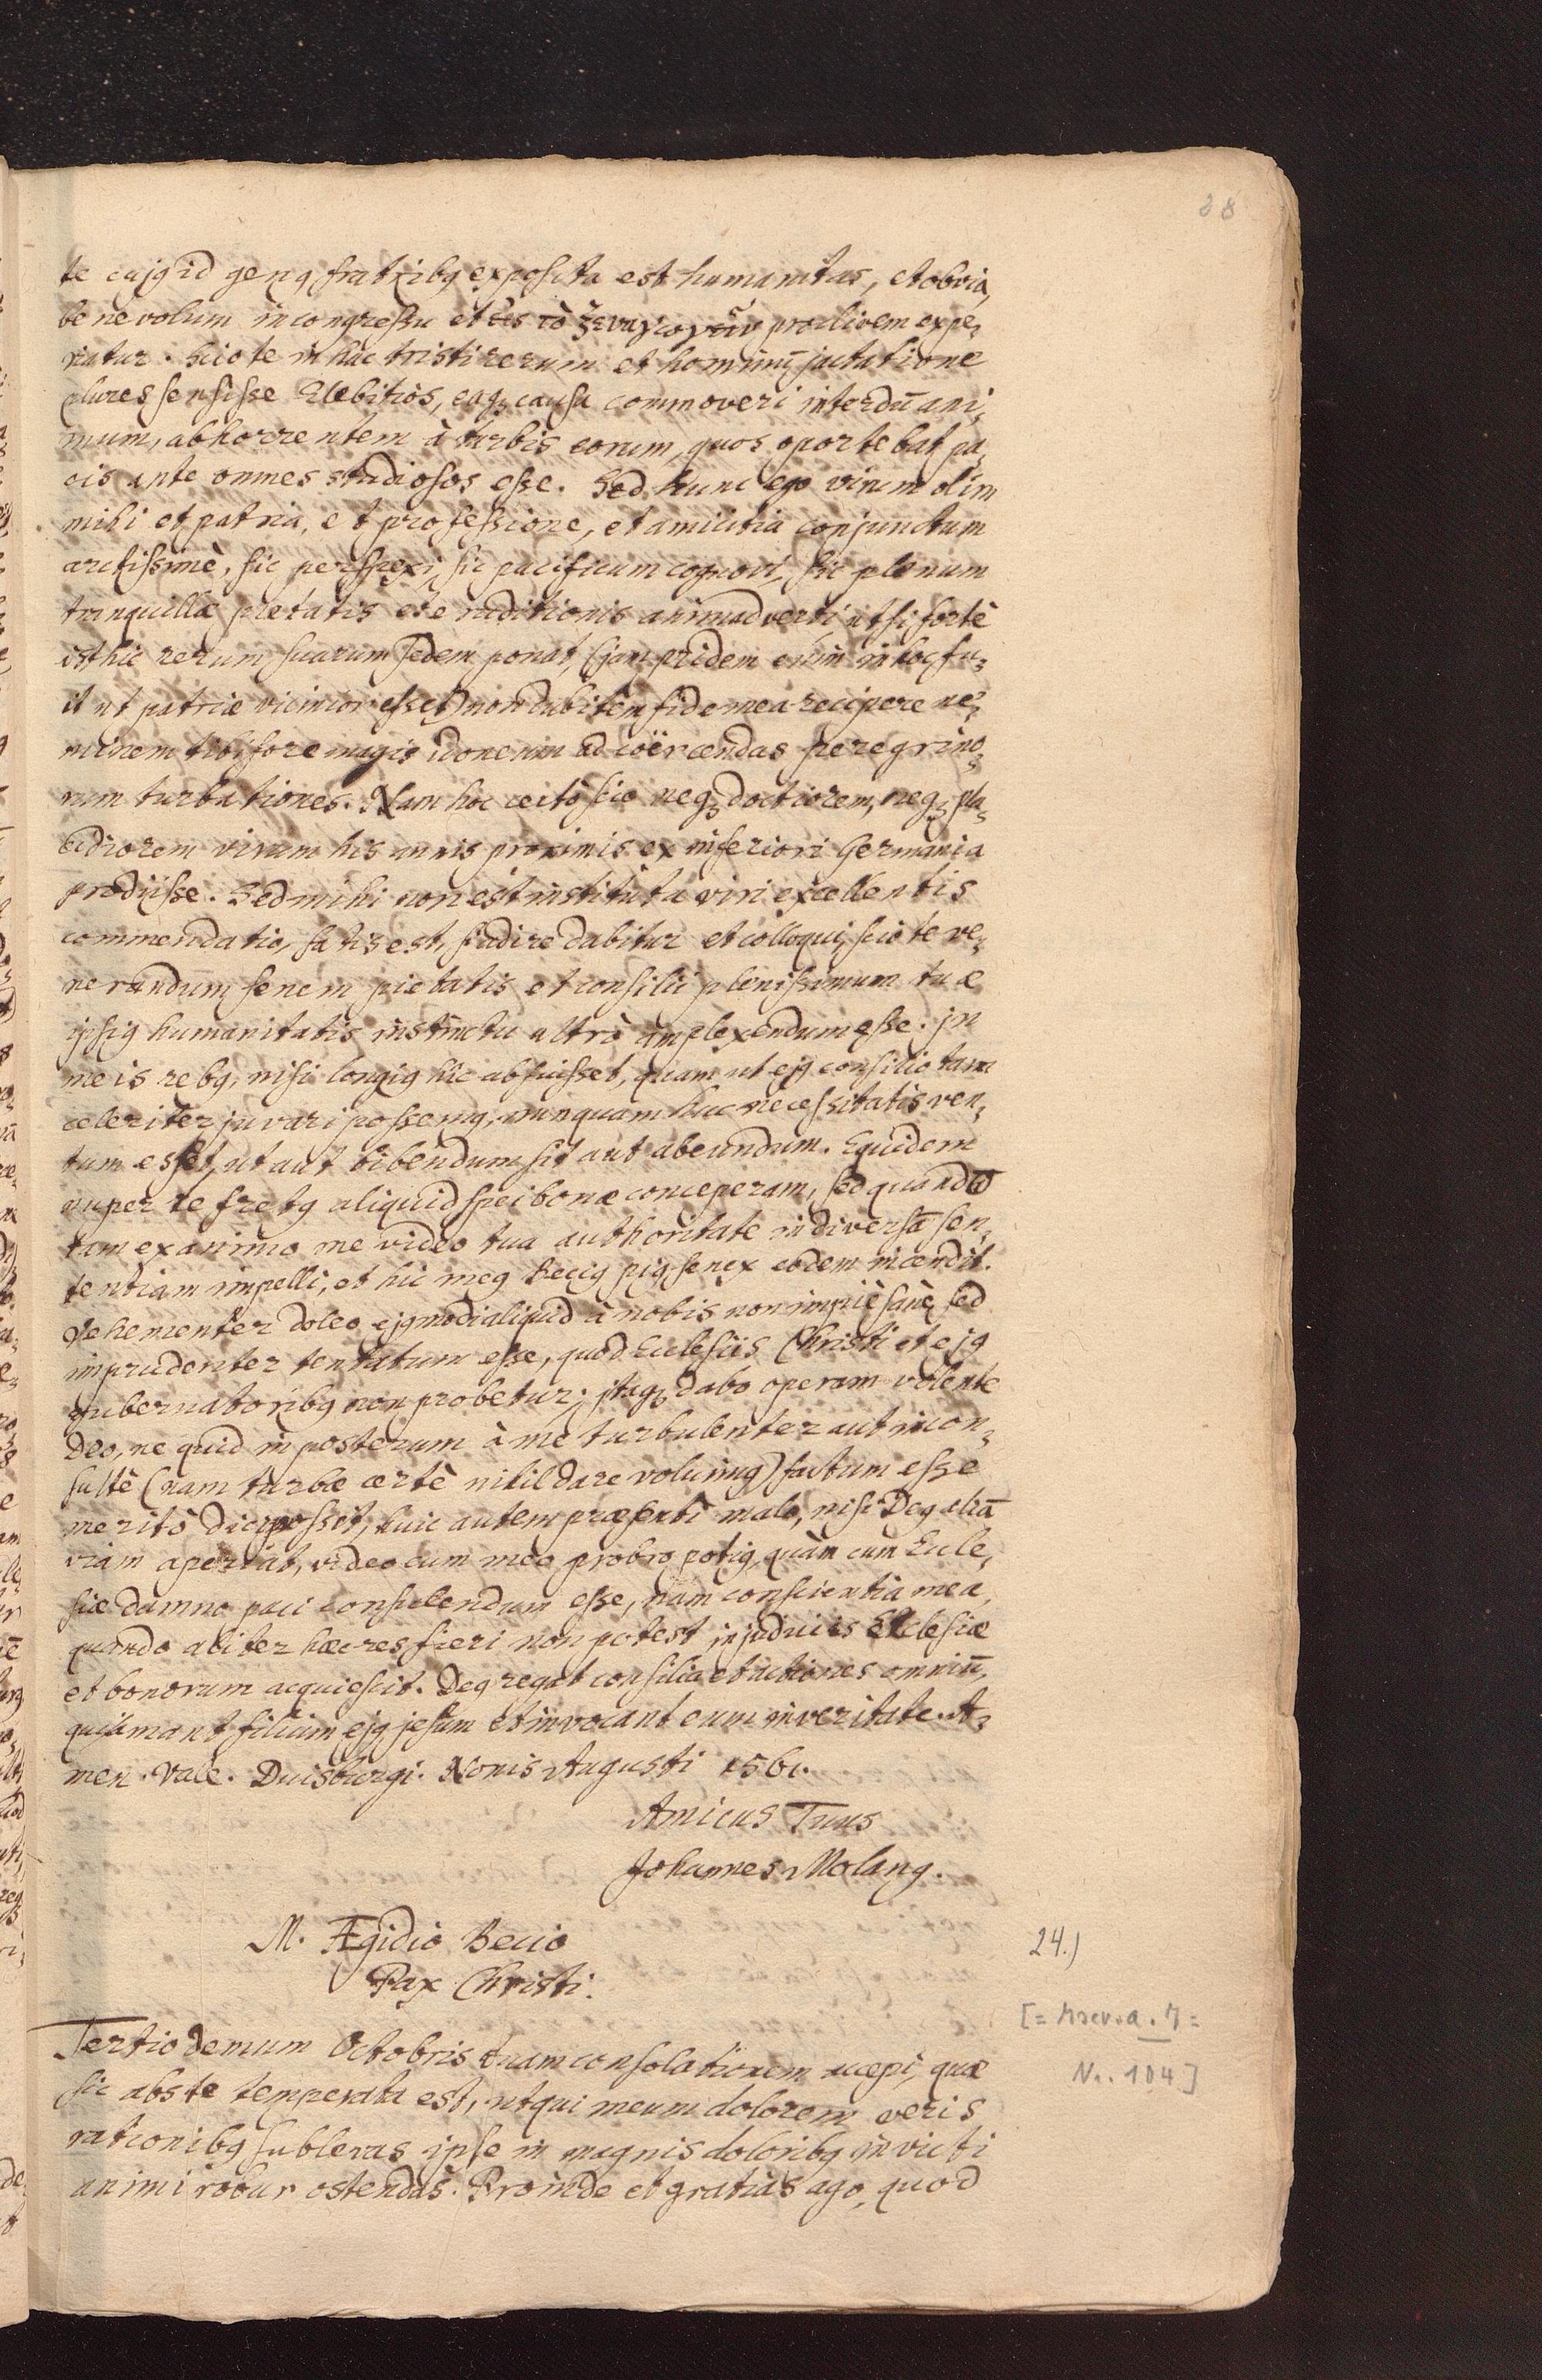 28
te cujꝯ id genꝯ fratribꝯ exposita est humanitas, et obvia,
benevolum in congressu et εἰς τὸ ξεναγωγεῖν proclivem expe,
riatur. Scio te in hac tristi rerum et hominū jactatione
plures sensisse Elebitios, eaqꝫ causa commoveri interdū ani,
mum, abhorrentem à turbis eorum, quos oportebat pa,
cis ante omnes studiosos esse. Sed hunc ego virum olim
mihi et patria, et professione, et amicitia conjunctum
arctissimè, sic perspexi, sic pacificum cognovi, sic plenum
tranquillæ pietatis et eruditionis animadverti ut si fortè
isthic rerum suarum sedem ponat, (jam pridem enim in hoc fu,
it ut patriæ vicinior esset) non dubitem fide mea recipere ne,
minem tibi fore magis idoneum ad coërcendas peregrino,
rum turbationes. Nam hoc certò scio neqꝫ doctiorem, neqꝫ pla,
cidiorem virum his annis proximis ex inferiori Germania
prodiisse. Sed mihi non est instituta viri excellentis
commendatio, satis est, si adire dabitur et colloqui, scio te ve,
nerandum senem pietatis et consilii plenissimum tuæ
ipsiꝯ humanitatis instinctu ultrò amplexendum esse. Jn
meis rebꝯ, nisi longiꝯ hic abfuisset, quam ut ejꝯ consilio tam
celeriter juvari possemꝯ, nunquam huc necessitatis ven,
tum esset, ut aut bibendum sit aut abeundum. Equidem
nuper te fretꝯ aliquid spei bonæ conceperam, sed quando
tam ex animo me video tua authoritate in diversā sen,
tentiam impelli, et hic meꝯ Beciꝯ piꝯ senex eodem incendit.
Vehementer doleo ejꝯmodi aliquid à nobis non impiè sanè, sed
imprudenter tentatum esse, quod Ecclesiis Christi et ejꝯ
gubernatoribꝯ non probetur; Jtaqꝫ dabo operam volente
Deo, ne quid in posterum à me turbulenter aut incon,
sultè (nam turbæ certè nihil dare volumꝯ) factum esse
meritò dici possit, huic autem præsenti malo, nisi Deꝯ aliā
viam aperiat, video cum meo probro potiꝯ, quàm cum Eccle,
siæ damno paci consulendum esse, nam conscientia mea,
quando aliter hæc res fieri non potest in judiciis Ecclesiæ
et bonorum acquiescit. Deꝯ regat consilia et actiones omniū,
qui amant filium ejꝯ jesum et invocant eum in veritate. A,
men. Vale. Duisburgi. Nonis Augusti 1561.
Amicus Tuus
Johannes Molanꝯ.
M. Ægidio Becio
24.)
Pax Christi.
[=
Nr. 104]
Tertio demum Octobris tuam consolationem accepi, quæ
sic abs te temperata est, ut qui meum dolorem veris
rationibꝯ sublevas ipse in magnis doloribꝯ invicti
animi robur ostendas. Proinde et gratias ago, quod